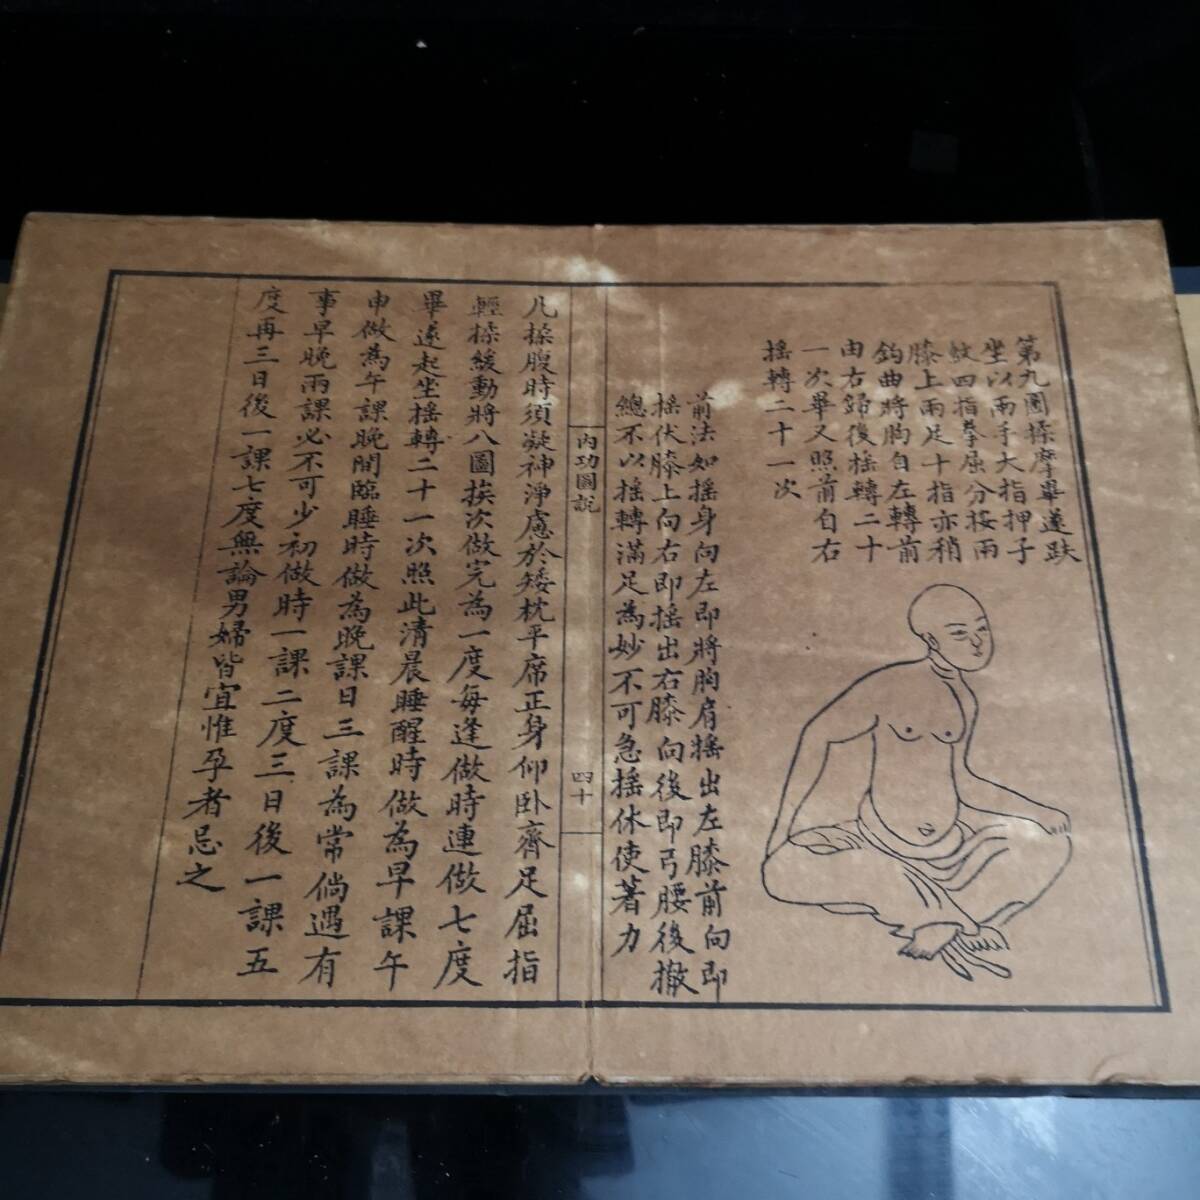 第九圖揉摩畢遂趺
坐以兩手大指押子
紋四指拳屈分按兩
膝上兩足十指亦稍
鈎曲將胸自左轉前
由右歸後搖轉二十
一次畢又照前自右
搖轉二十一次
前法如搖身向左即將胸肩搖出左膝前向即
搖伏膝上向右即搖出右膝向後即弓腰後撤
總不以搖轉滿足為妙不可急搖休使著力
內功圖說
四十
凡揉腹時須凝神淨慮於矮枕平席正身仰卧齊足屈指
輕揉緩動將八圖挨次做完為一度每逢做時連做七度
畢遂起坐搖轉二十一次照此清晨睡醒時做為早課午
申做為午課晚間臨睡時做為晚課日三課為常倘遇有
事早晚兩課必不可少初做時一課二度三日後一課五
度再三日後一課七度無論男婦皆宜惟孕者忌之